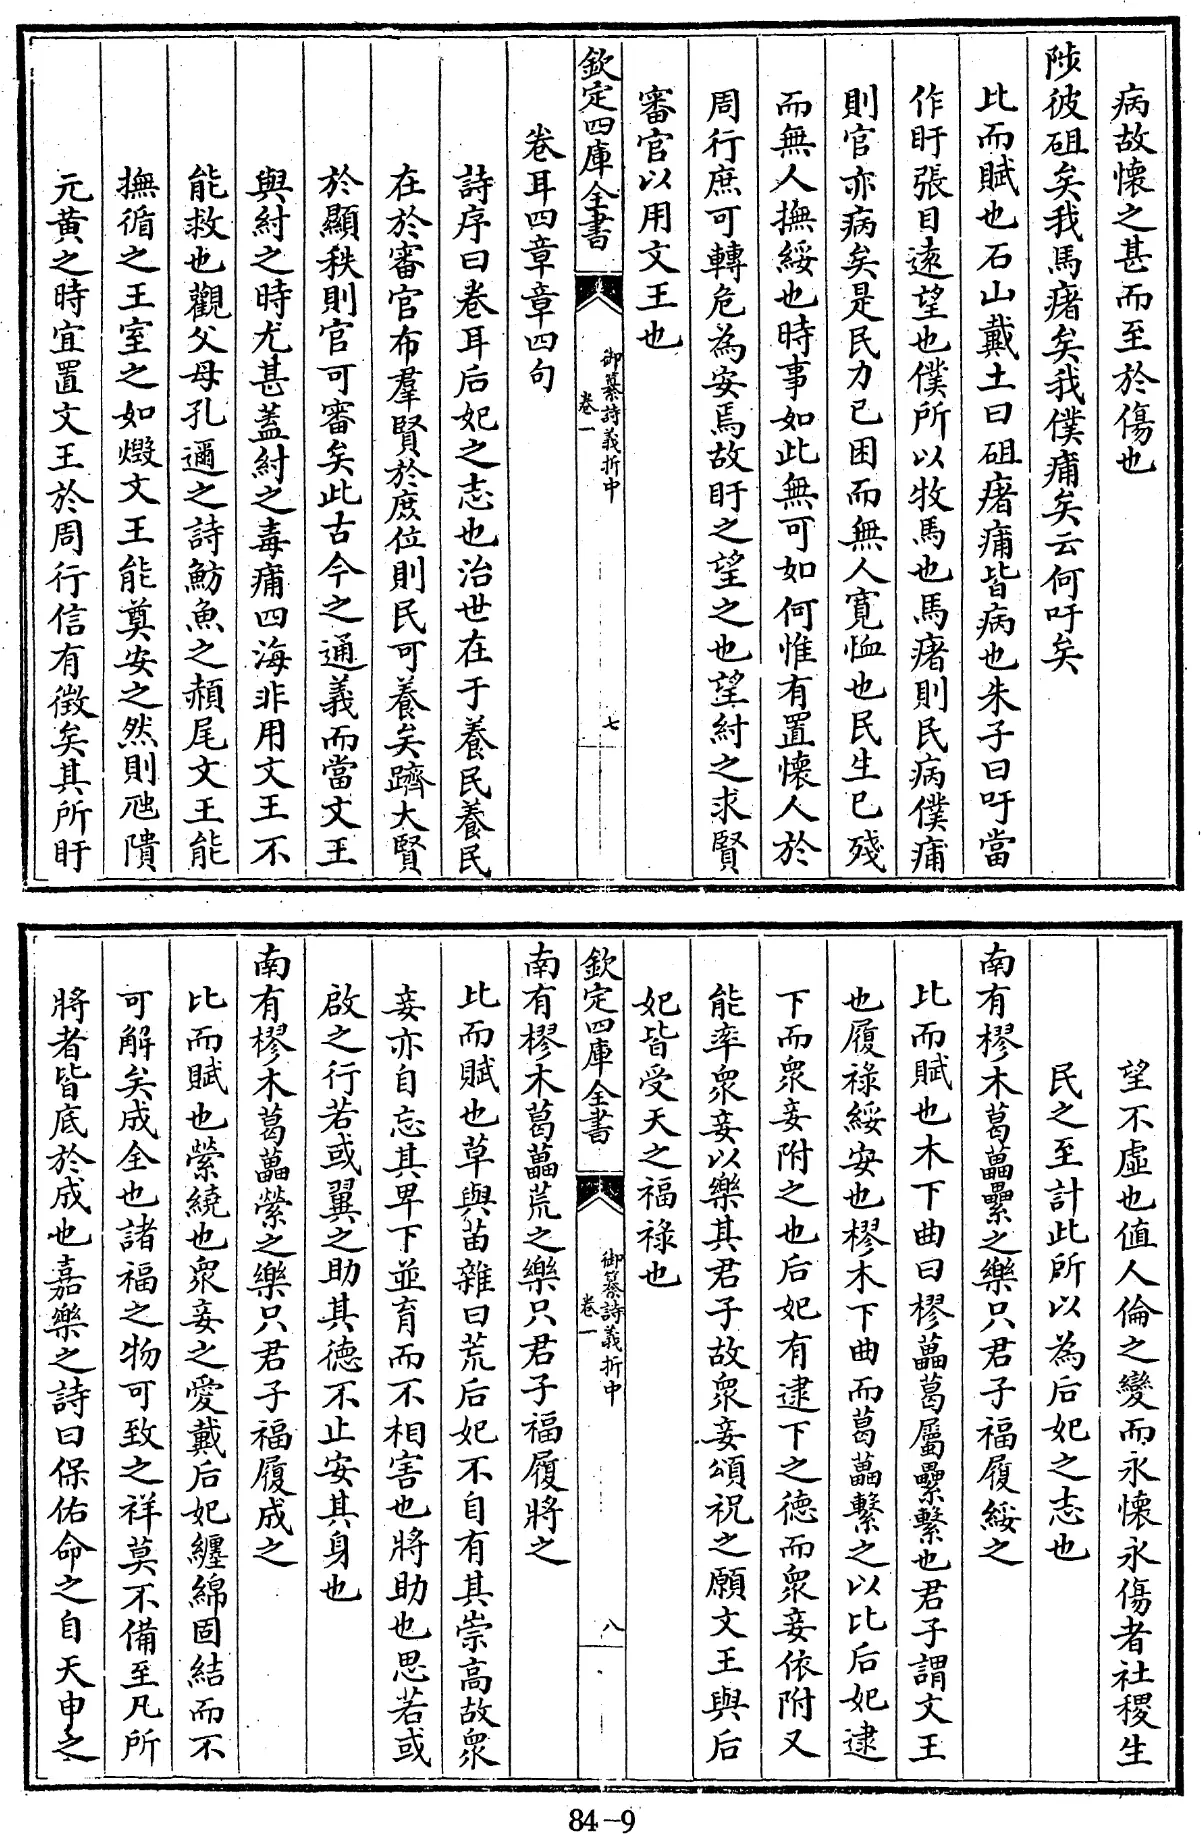 病故懷之甚而至於傷也
陟彼砠矣我馬瘏矣我僕痡矣云何吁矣
比而賦也石山戴土曰砠瘏痡皆病也朱子曰吁當
作盱張目遠望也僕所以牧馬也馬瘏則民病僕痡
則官亦病矣是民力已困而無人寛恤也民生已殘
而無人撫綏也時事如此無可如何惟有置懷人於
周行庶可轉危為安焉故盱之望之也望紂之求賢
審官以用文王也
欽定四庫全書
御纂詩義折中
卷一
七
卷耳四章章四句
詩序曰卷耳后妃之志也治世在于養民養民
在於審官布羣賢於庶位則民可養矣躋大賢
於顯秩則官可審矣此古今之通義而當文王
與紂之時尤甚蓋紂之毒痡四海非用文王不
能救也觀父母孔邇之詩魴魚之赬尾文王能
撫循之王室之如燬文王能奠安之然則虺隤
元黄之時宜置文王於周行信有徵矣其所盱
望不虚也值人倫之變而永懷永傷者社稷生
民之至計此所以為后妃之志也
南有樛木葛藟纍之樂只君子福履綏之
比而賦也木下曲曰樛藟葛屬纍繫也君子謂文王
也履祿綏安也樛木下曲而葛藟繫之以比后妃逮
下而衆妾附之也后妃有逮下之德而衆妾依附又
能率衆妾以樂其君子故衆妾頌祝之願文王與后
妃皆受天之福祿也
欽定四庫全書
御纂詩義折中
卷一
八
南有樛木葛藟荒之樂只君子福履將之
比而賦也草與苗雜曰荒后妃不自有其崇高故衆
妾亦自忘其卑下並育而不相害也將助也思若或
啟之行若或翼之助其德不止安其身也
南有樛木葛藟縈之樂只君子福履成之
比而賦也縈繞也衆妾之愛戴后妃纒綿固結而不
可解矣成全也諸福之物可致之祥莫不備至凡所
將者皆底於成也嘉樂之詩曰保佑命之自天申之
84-9